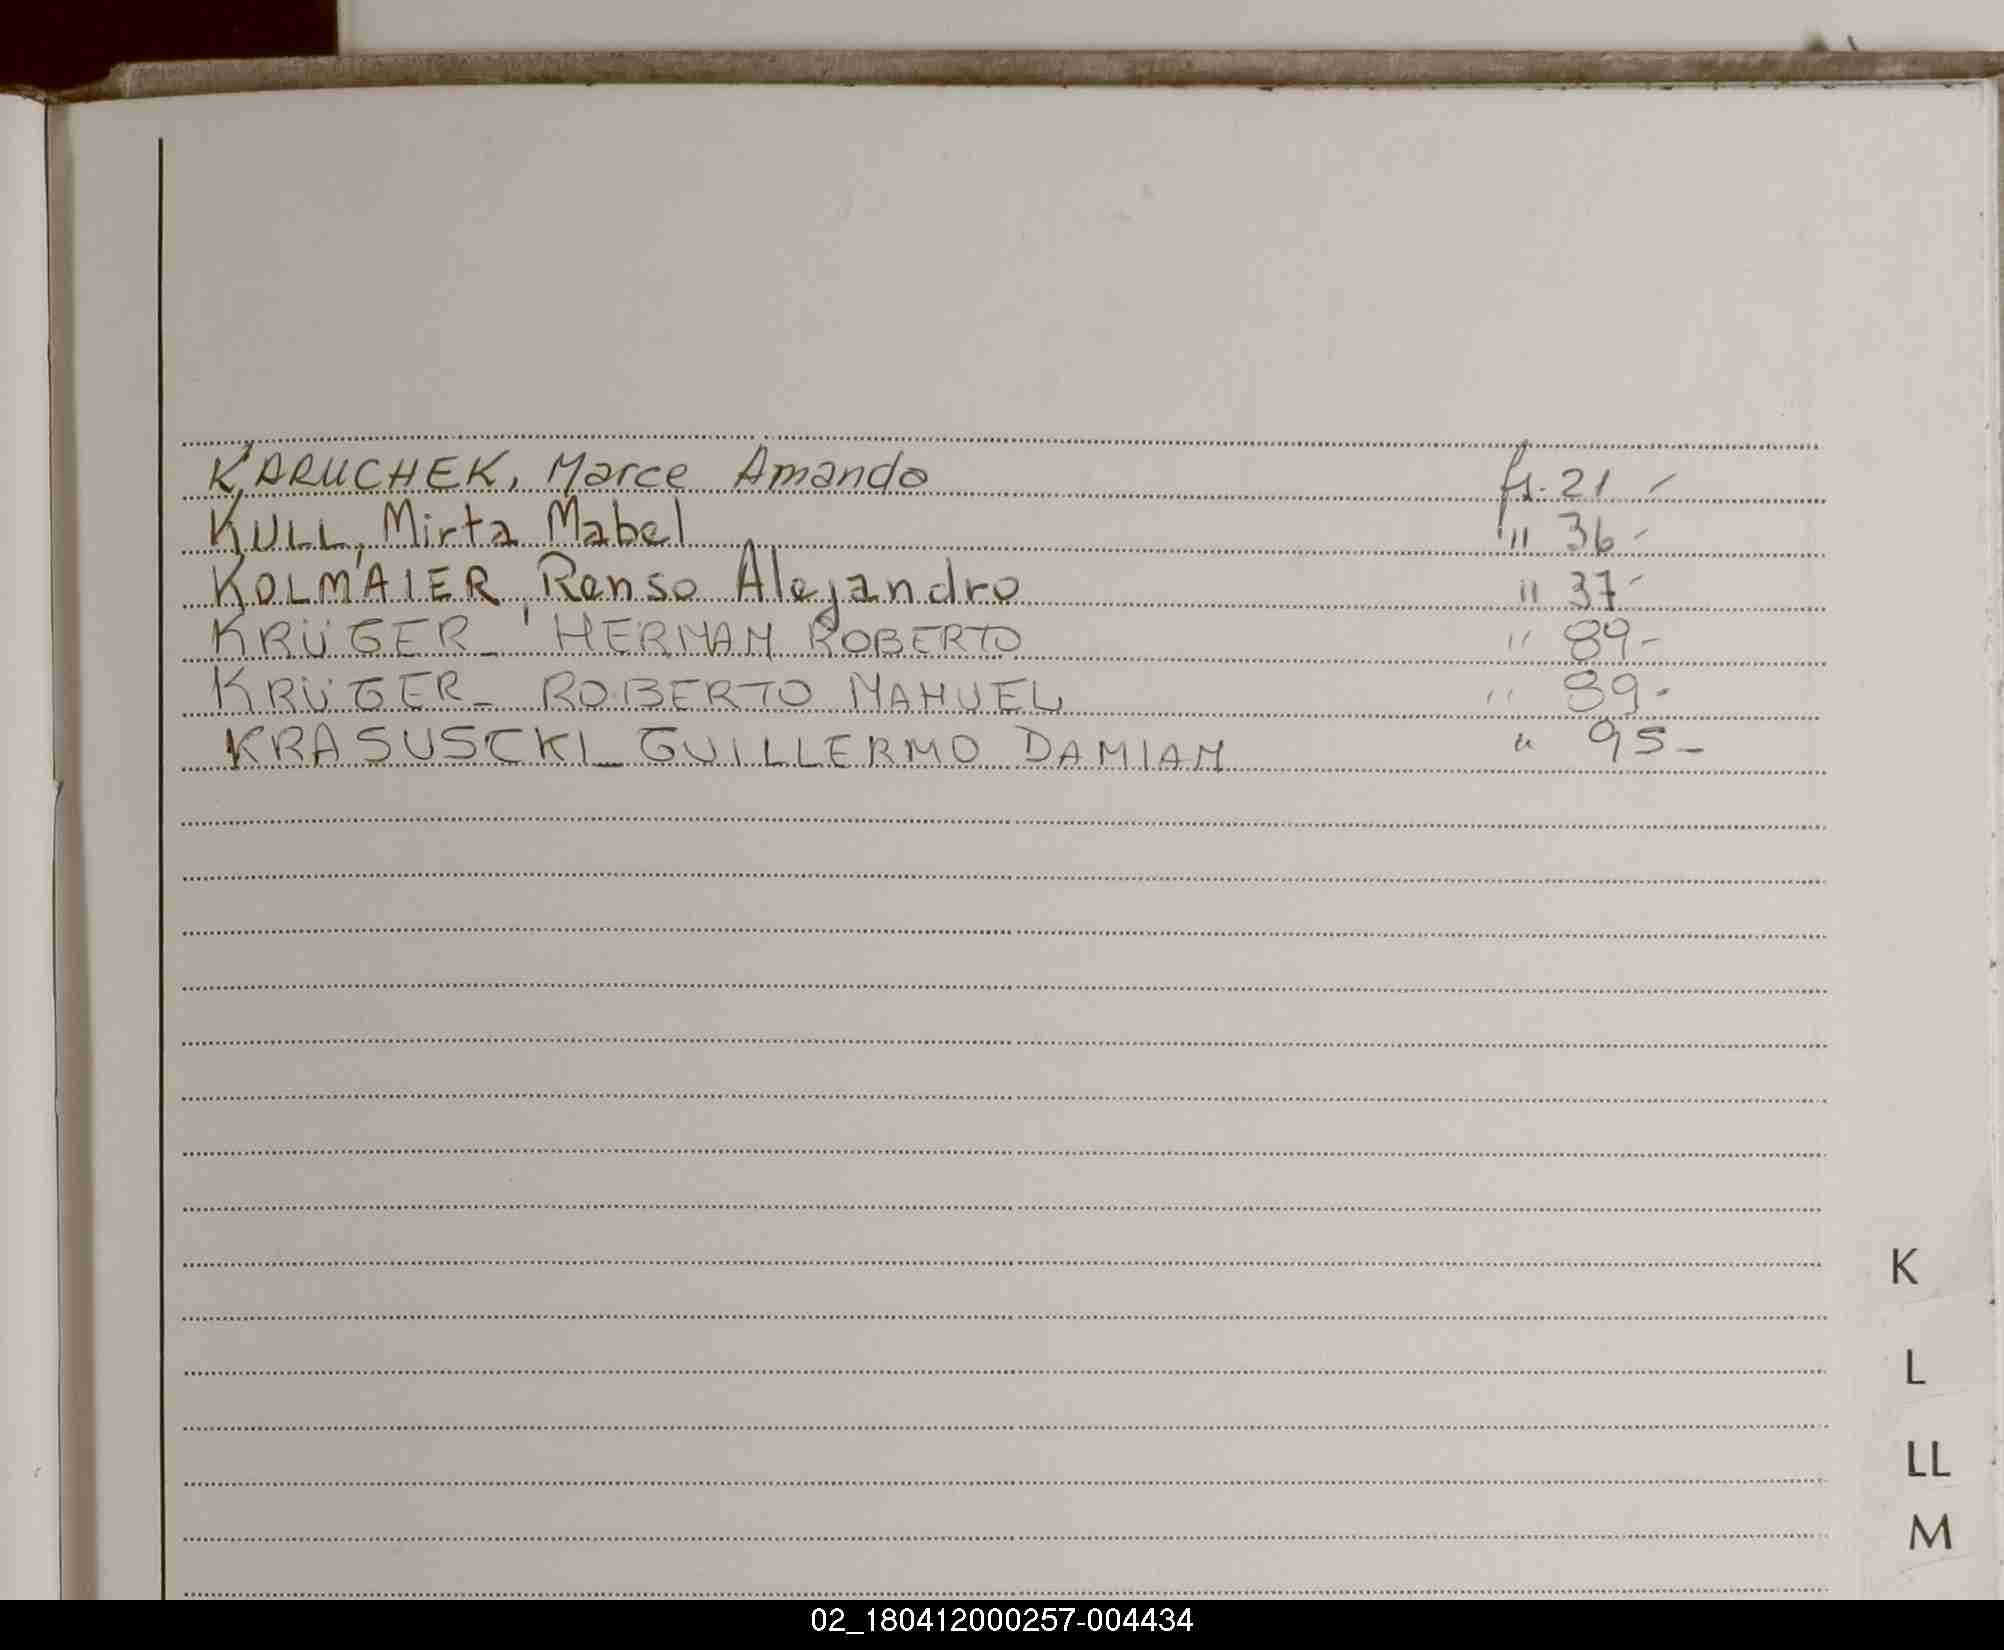 KARUCHEK, Marce Amanda fs. 21 -
KULL, Mirta Mabel " 36 -
KOLMAIER, Renso Alejandro " 37 -
KRÜGER - HERNAN ROBERTO " 89 -
KRÜGER - ROBERTO MANUEL " 89 -
KRASUSCKI - GUILLERMO DAMIAN " 95 -
K
L
LL
M
02_180412000257-004434